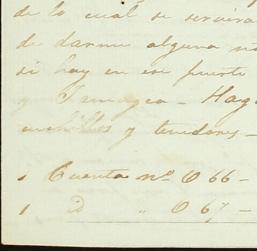 de lo cual se servira
de darme alguna no
si hay en ese puerto
y Haga
cuchillos y tenedores -
1 Cuenta nº 066 -
1 id " 067 -